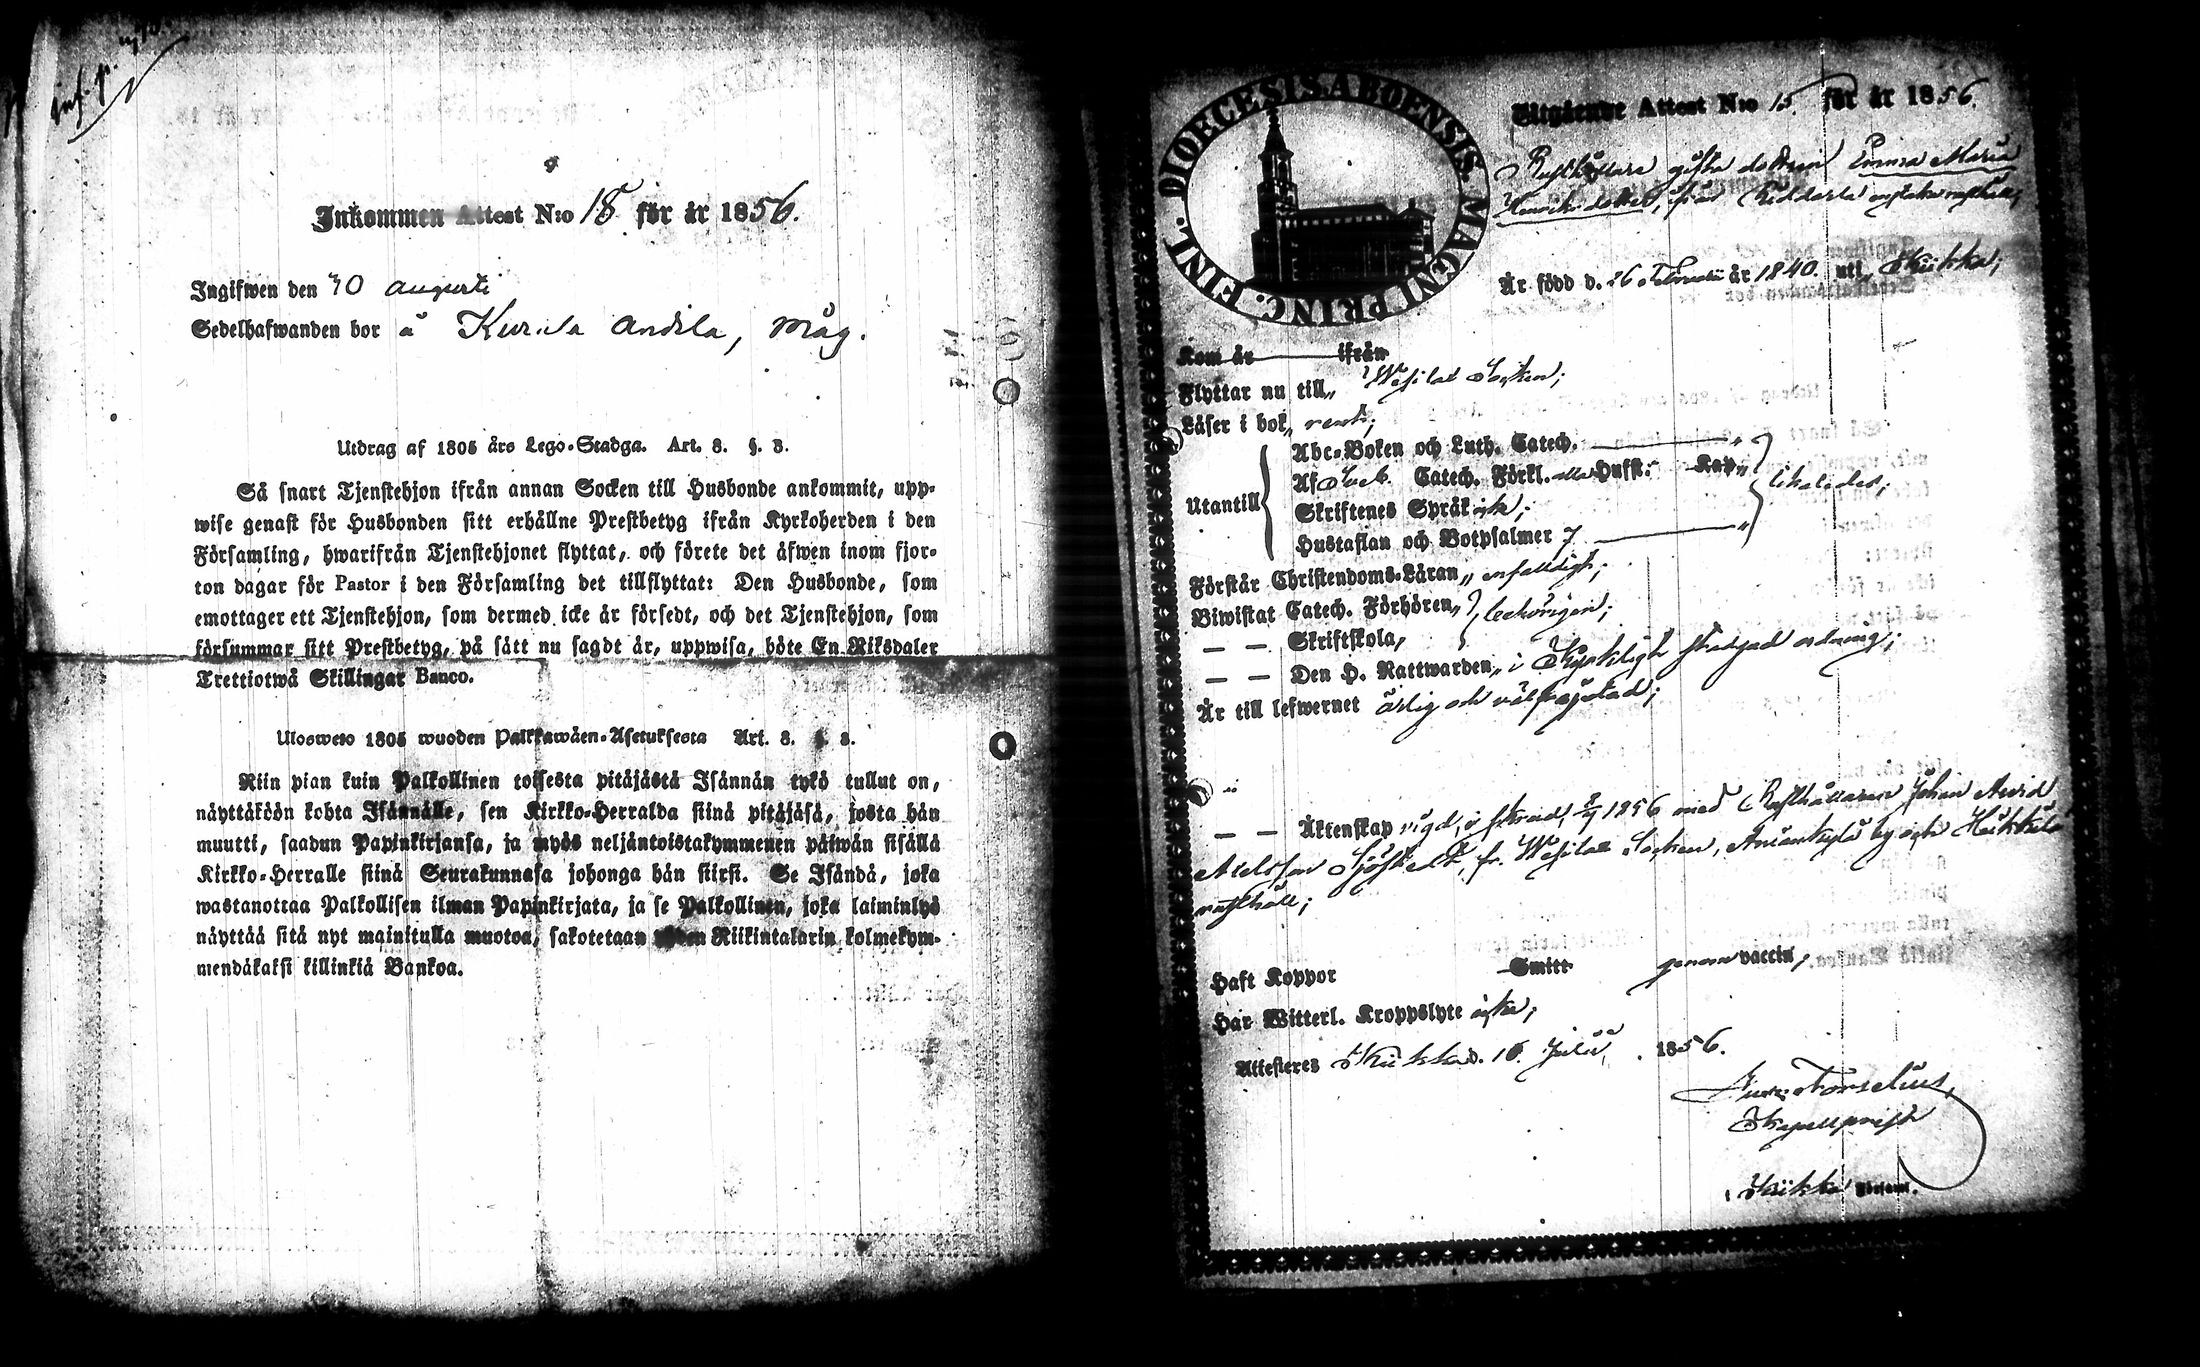 inf. p.
Inkommen Attest N:o 18 för år 1856.
Ingifwen den 10 augusti
Sedelhafwanden bor å Kurila Andila, måg.
Utdrag af 1805 års Lego-Stadga. Art. 8. §. 3.
Så snart Tjenstehjon ifrån annan Socken till Husbonde ankommit, upp-
wise genast för Husbonden sitt erhållne Prestbetyg ifrån Kyrkoherden i den
Församling, hwarifrån Tjenstehjonet flyttat, och förete det äfwen inom fjor-
ton dagar för Pastor i den Församling det tillflyttat: Den Husbonde, som
emottager ett Tjenstehjon, som dermed icke är försedt, och det Tjenstehjon, som
försummar sitt Prestbetyg, på sätt nu sagdt är, uppwisa, böte En Riksdaler
Trettiotwå Skillingar Banco.
Ulosweto 1805 wuoden Palkkawäen-Asetuksesta Art. 8. §. 3.
Niin pian kuin Palkollinen toisesta pitäjästä Isännän tykö tullut on,
näyttäköön kohta Isännälle, sen Kirkko-Herralda siinä pitäjäsä, josta hän
muutti, saadun Papinkirjansa, ja myös neljäntoistakymmenen päiwän sisällä
Kirkko-Herralle siinä Seurakunnasa johonga hän siirsi. Se Isändä, joka
wastanottaa Palkollisen ilman Papinkirjata, ja se Palkollinen, joka laiminlyö
näyttää sitä nyt mainitulla muotoa, sakotetaan yhden Riikintalarin kolmekym-
mendäkaksi killinkiä Bankoa.
DIOECESIS ABOENSIS MAGNI PRINC. FINL.
Utgående Attest N:o 15 för år 1856.
Rusthållare gifta dottren Emma Maria
Henriksdotter, från Ridderla rusthåll,
Är född d. 26 Februarii år 1840. uti Kiikka;
Kom år ifrån
Flyttar nu till Socken;
Läser i bok rent;
Utantill
Abc-Boken och Luth. Catech.
Af Sveb. Catech. Förkl. alla Hufst: Kap.
likaledes;
Skriftenes Språk icke;
Hustaflan och Botpsalmer 7
Förstår Christendoms-Läran enfaldigt;
Biwistat Catech. Förhören behörigen;
— — Skriftskola,
— — Den H. Nattwarden i Kyrkligt stadgad ordning;
Är till lefwernet ärlig och välfrejdad;
— — Äktenskap vigd, 1856 med Rusthållaren Johan Arvid
fr. Socken, by och Heikkilä
rusthåll;
Haft Koppor Smitt genom vaccin,
Har Witterl. Kroppslyte icke;
Attesteres Kiikka d. 16 Julii 1856.
Forselius,
Kapellprest
i Kiikka Församl.